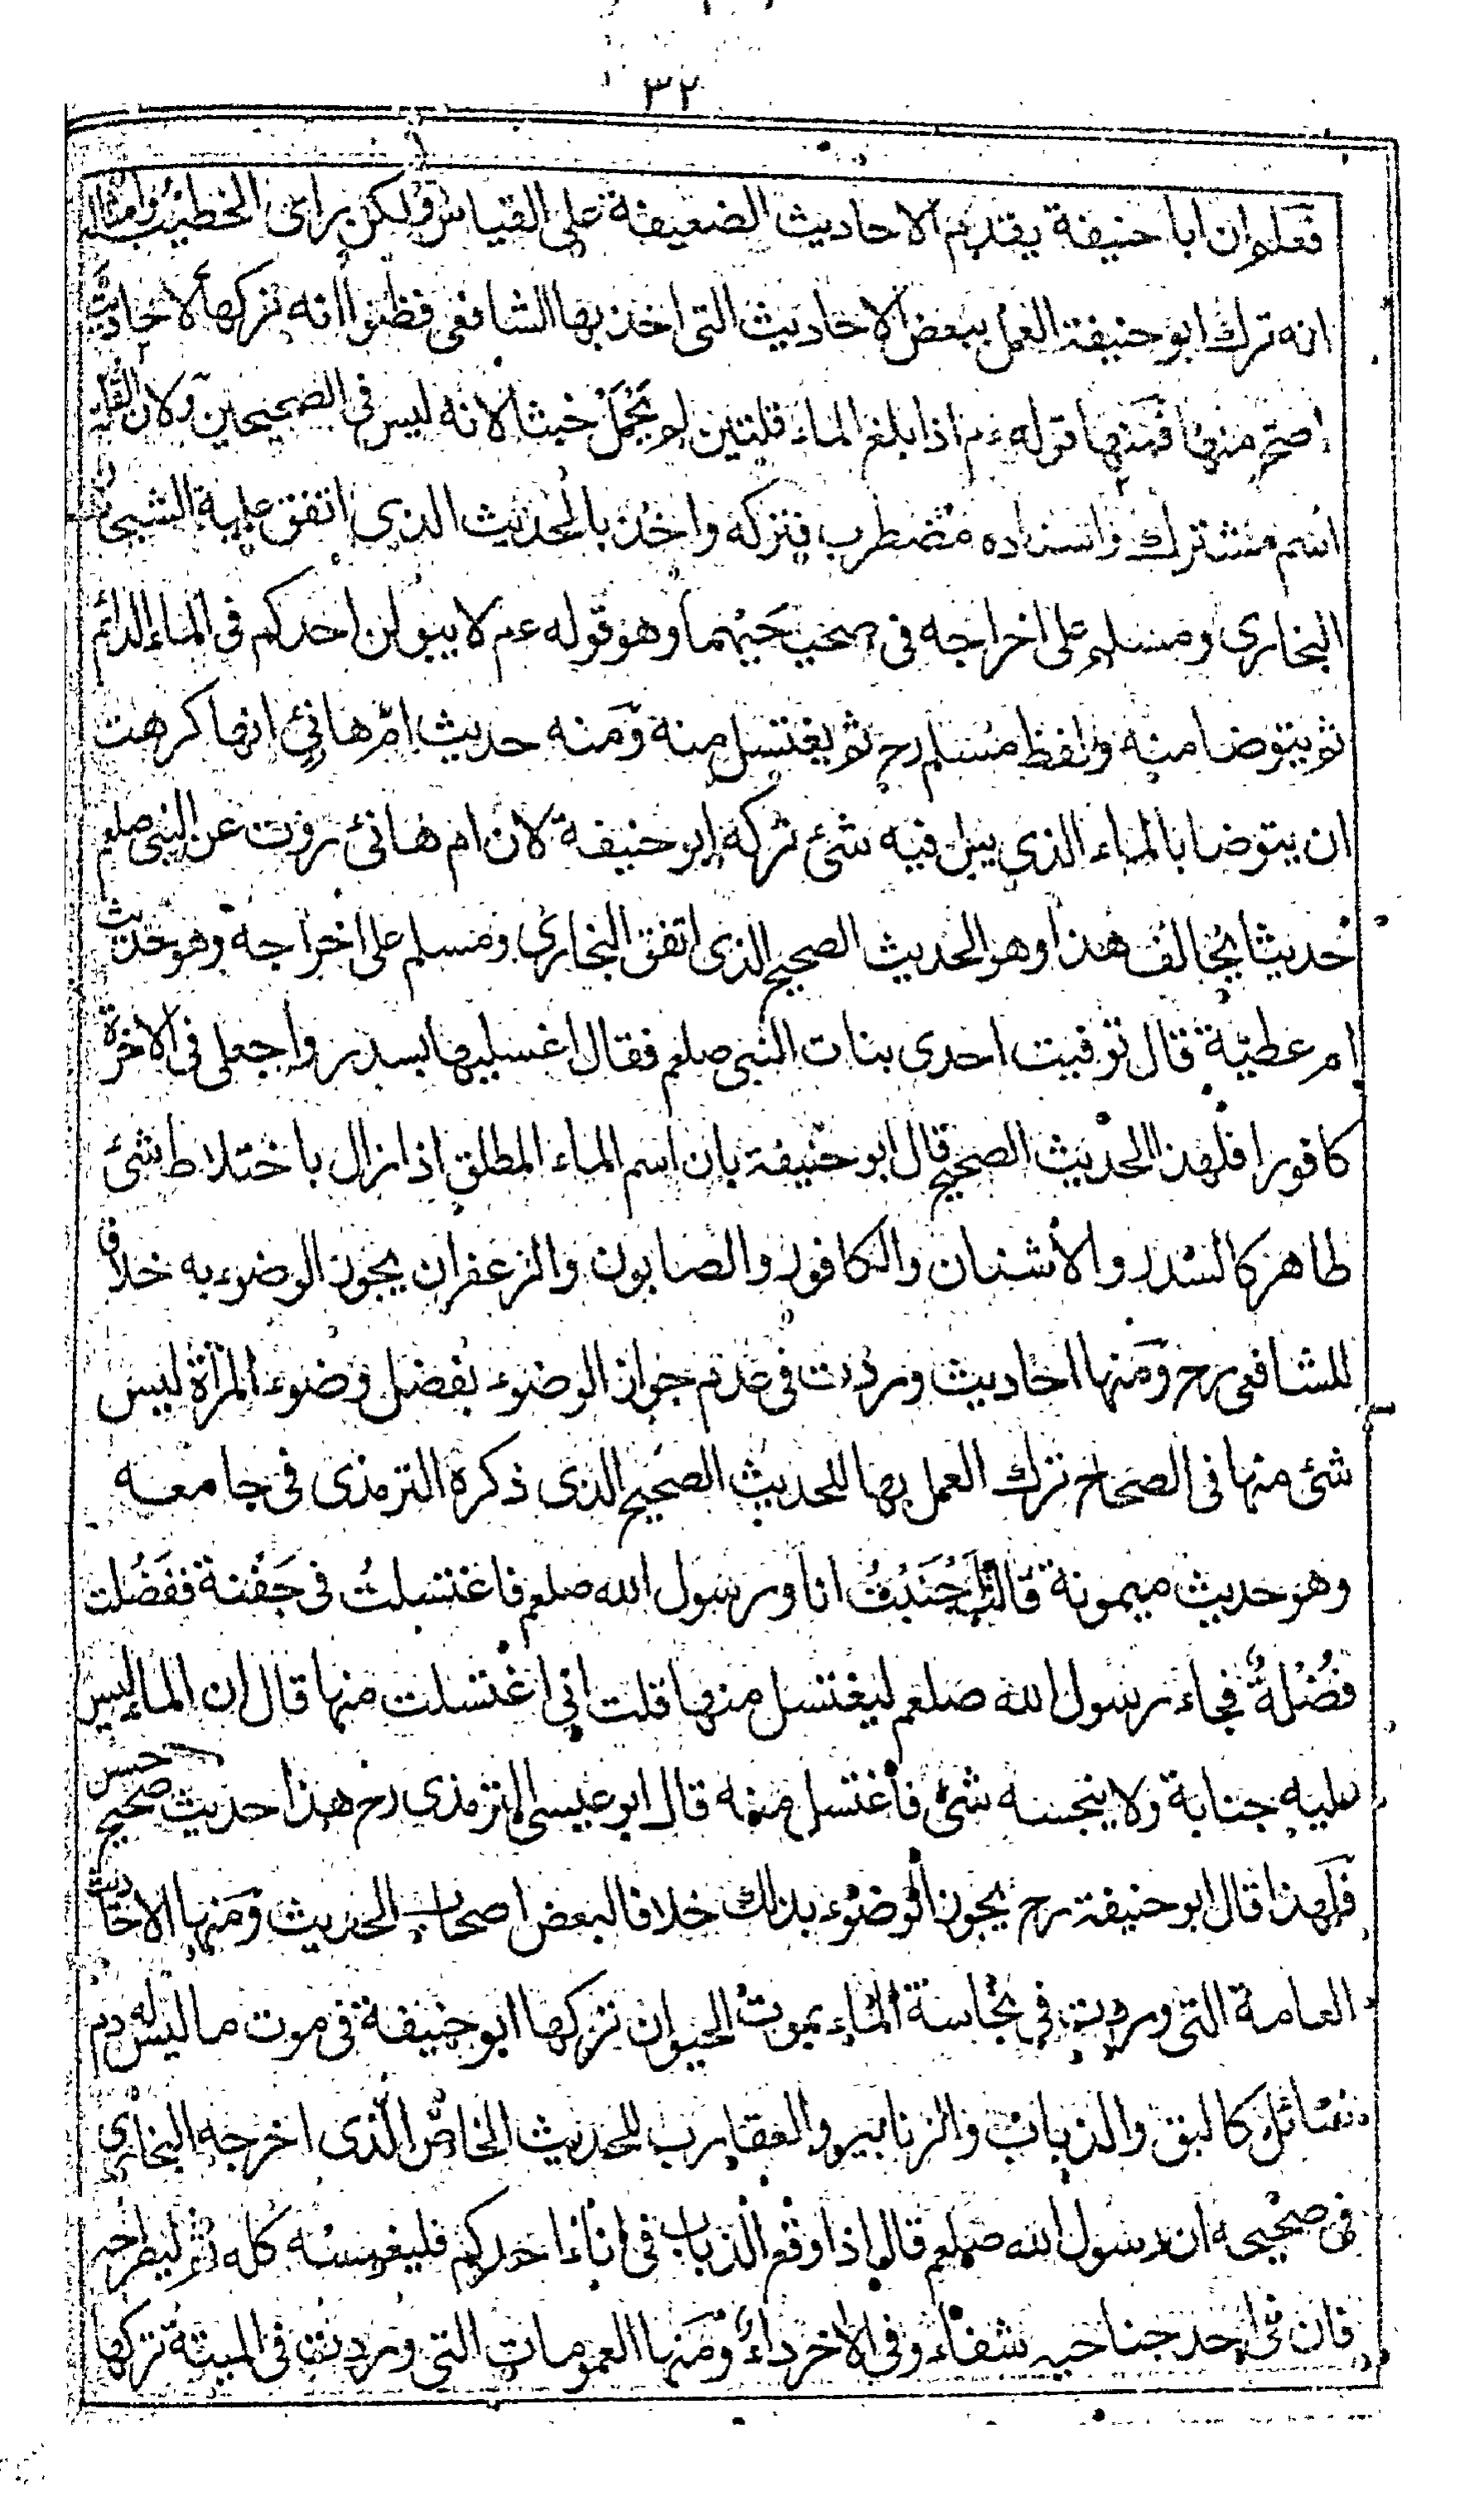 ٣٢
فعلم ان ابا حنيفة يقدم الاحاديث الضعيفة على القياس ولكن راى الخطيب وامثاله
انه ترك ابو حنيفة العمل ببعض الاحاديث التى اخذ بها الشافعى فظنوا انه تركها لاحاديث
اصح منها فمنها قوله عم اذا بلغ الماء قلتين لم يَحْمِلْ خبثا لانه ليس فى الصحيحين ولان القلة
اسم مشترك واسناده مضطرب فتركه واخذ بالحديث الذى اتفق عليه الشيخان
البخارى ومسلم على اخراجه فى صحيحيهما وهو قوله عم لا يبولن احدكم فى الماء الدائم
ثم يتوضا منه ولفظ مسلم رح ثم يغتسل منه ومنه حديث امّ هانئ انها كرهت
ان يتوضا بالماء الذى يبل فيه شئ تركه ابو حنيفة لان ام هانئ روت عن النبى صلعم
حديثا يخالف هذا وهو الحديث الصحيح الذى اتفق البخارى ومسلم على اخراجه وهو حديث
ام عطيّة قال توفيت احدى بنات النبى صلعم فقال اغسليها بسدر واجعلى فى الاخرة
كافورا فلهذا الحديث الصحيح قال ابو حنيفة بان اسم الماء المطلق اذا زال باختلاط شئ
طاهر كالسدر والاشنان والكافور والصابون والزعفران يجوز الوضوء به خلاف
للشافعى رح ومنها احاديث وردت فى عدم جواز الوضوء بفضل وضوء المرأة ليس
شئ منها فى الصحاح ترك العمل بها للحديث الصحيح الذى ذكره الترمذى فى جامعه
وهو حديث ميمونة قالت اَجْنَبْتُ انا ورسول الله صلعم فاغتسلتُ فى جَفْنة ففَضُلت
فُضْلةٌ فجاء رسول الله صلعم ليغتسل منها قلت انى اغتسلت منها قال ان الماء ليس
عليه جنابة ولا ينجسه شئ فاغتسل منه قال ابو عيسى الترمذى رح هذا حديث حسن صحيح
فلهذا قال ابو حنيفة رح يجوز الوضوء بذلك خلافا لبعض اصحاب الحديث ومنها الاحاديث
العامة التى وردت فى نجاسة الماء بموت الحيوان تركها ابو حنيفة فى موت ما ليس له دم
سائل كالبق والذباب والزنابير والعقارب للحديث الخاصّ الذى اخرجه البخارى
فى صحيحه ان رسول الله صلعم قال اذا وقع الذباب فى اناء احدكم فليغمسه كله ثم ليطرحه
فان فى احد جناحيه شفاء وفى الاخر داء ومنها العمومات التى وردت فى الميتة تركها